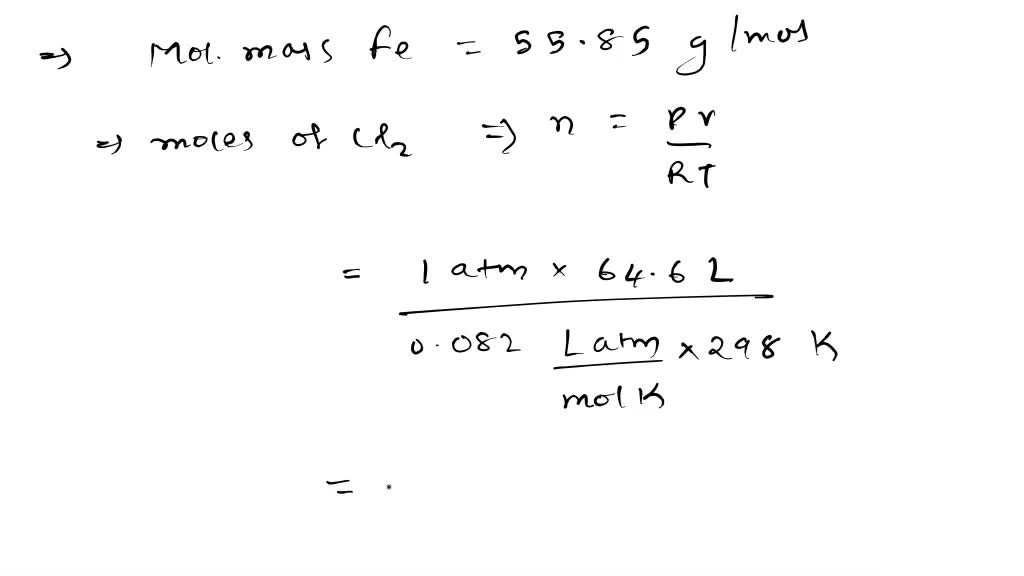 ⇒ Mol. mass Fe = 55.85 g/mol
⇒ moles of Cl2 ⇒ n = PV
RT
= 1 atm × 64.6 L
0.082 L atm × 298 K
mol K
= .